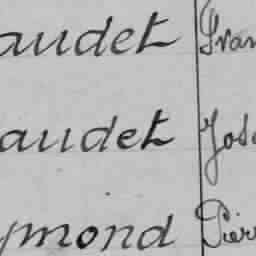 audet Fran
audet Jos
ymond Pier